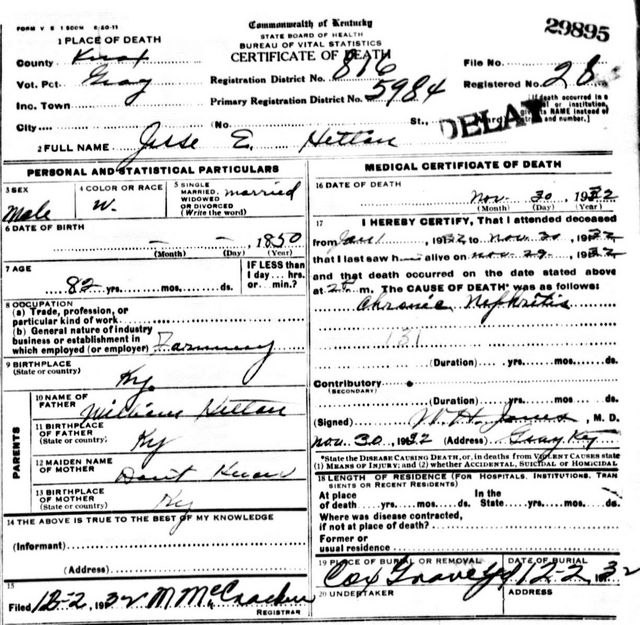 FORM V S 1 500M 6-20-11
Commonwealth of Kentucky
STATE BOARD OF HEALTH
BUREAU OF VITAL STATISTICS
CERTIFICATE OF DEATH
29895
1 PLACE OF DEATH
County Knox
Vot. Pct. Gray
Inc. Town
City (No. St., Ward)
Registration District No. 816
Primary Registration District No. 5984
File No.
Registered No. 28
If death occurred in a
or institution,
NAME instead of
and number.
DELAY
2 FULL NAME Jesse E. Hetton
PERSONAL AND STATISTICAL PARTICULARS
3 SEX Male
4 COLOR OR RACE W.
5 SINGLE MARRIED, WIDOWED OR DIVORCED (Write the word) married
6 DATE OF BIRTH - - , 1850
(Month) (Day) (Year)
7 AGE 82 yrs. mos. ds.
IF LESS than 1 day... hrs. or min.?
8 OCCUPATION
(a) Trade, profession, or
particular kind of work
(b) General nature of industry
business or establishment in
which employed (or employer) Farming
9 BIRTHPLACE
(State or country) Ky.
PARENTS
10 NAME OF FATHER William Hetton
11 BIRTHPLACE OF FATHER (State or country) Ky
12 MAIDEN NAME OF MOTHER Don't Know
13 BIRTHPLACE OF MOTHER (State or country) Ky
14 THE ABOVE IS TRUE TO THE BEST OF MY KNOWLEDGE
(Informant)
(Address)
15
Filed 12-2, 1932 M McCracken
REGISTRAR
MEDICAL CERTIFICATE OF DEATH
16 DATE OF DEATH
Nov. 30, 1932
(Month) (Day) (Year)
17 I HEREBY CERTIFY, That I attended deceased
from Jan 1, 1932 to Nov. 30, 1932
that I last saw h alive on Nov. 29, 1932
and that death occurred on the date stated above
at m. The CAUSE OF DEATH was as follows:
Chronic Nefhritis
131
(Duration) yrs. mos. ds.
Contributory
(SECONDARY)
(Duration) yrs. mos. ds.
(Signed) W. H. Jones, M. D.
Nov. 30, 1932 (Address) Gray Ky
*State the DISEASE CAUSING DEATH, or, in deaths from VIOLENT CAUSES state
(1) MEANS OF INJURY; and (2) whether ACCIDENTAL, SUICIDAL or HOMICIDAL
18 LENGTH OF RESIDENCE (FOR HOSPITALS, INSTITUTIONS, TRAN
SIENTS OR RECENT RESIDENTS)
At place of death yrs. mos. ds. In the State yrs. mos. ds.
Where was disease contracted,
if not at place of death?
Former or
usual residence
19 PLACE OF BURIAL OR REMOVAL DATE OF BURIAL
Cox Grave 12-2 1932
20 UNDERTAKER ADDRESS